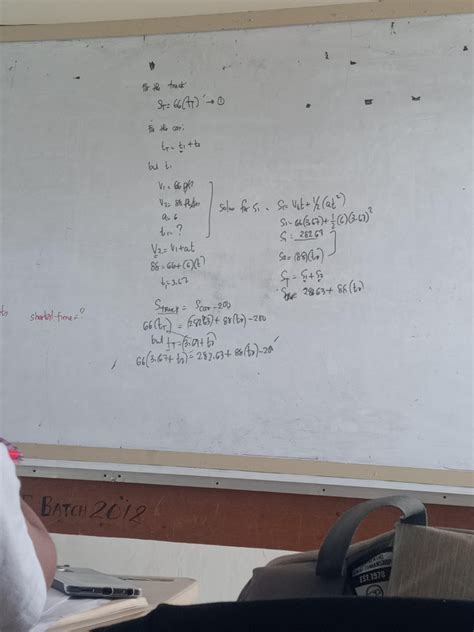 For the truck
S_T = 66(t_T) → ①
For the car:
t_T = t_1 + t_2
but t_1
V_1 = 66
V_2 = 88
a = 6
t_1 = ?
V_2 = V_1 + at
88 = 66 + (6)(t)
t_1 = 3.67
Solve for S_1
S_1 = V_1t + 1/2 (at²)
S_1 = 66(3.67) + 1/2 (6)(3.67)²
S_1 = 282.63
S_2 = (88)(t_2)
S_T = S_1 + S_2
282.63 + 88(t_2)
S_truck = S_car - 200
66(t_T) = (282.63) + 88(t_2) - 200
but t_T = (3.67 + t_2)
66(3.67 + t_2) = 282.63 + 88(t_2) - 20
shortest time = ?
BATCH 2012
EST.1978